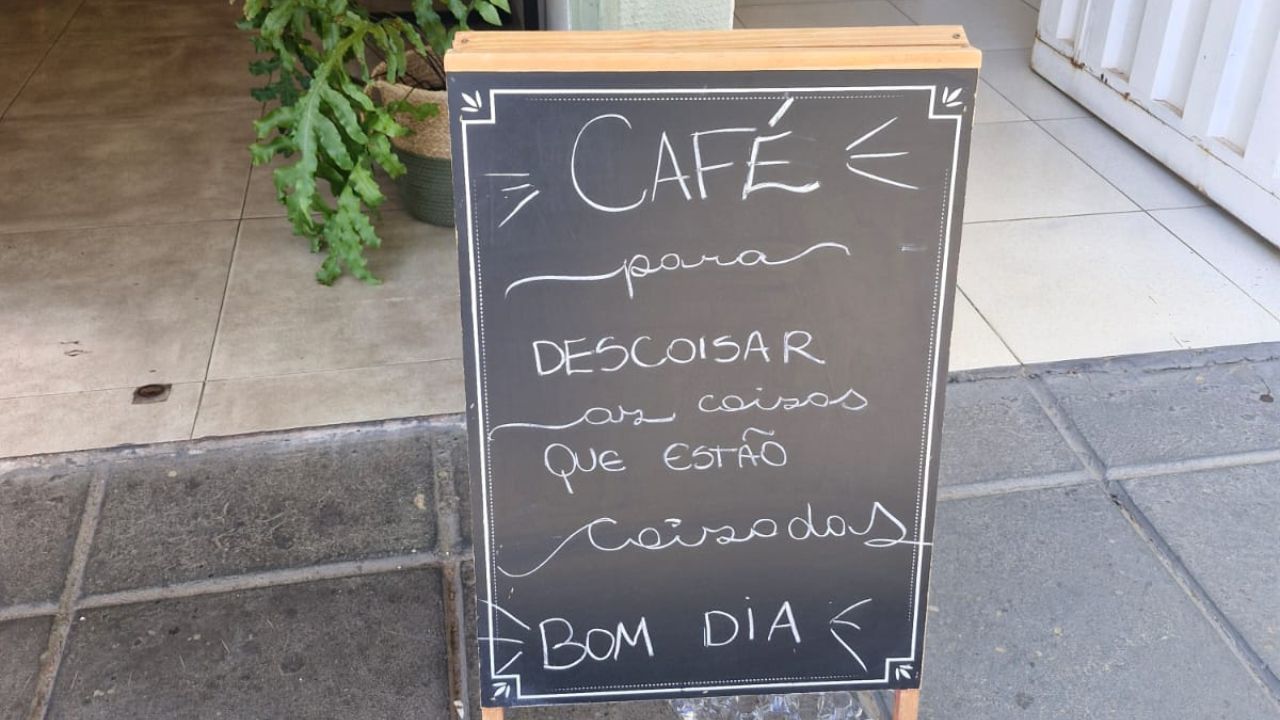 CAFÉ
para
DESCOISAR
as coisas
QUE ESTÃO
Coisadas
BOM DIA